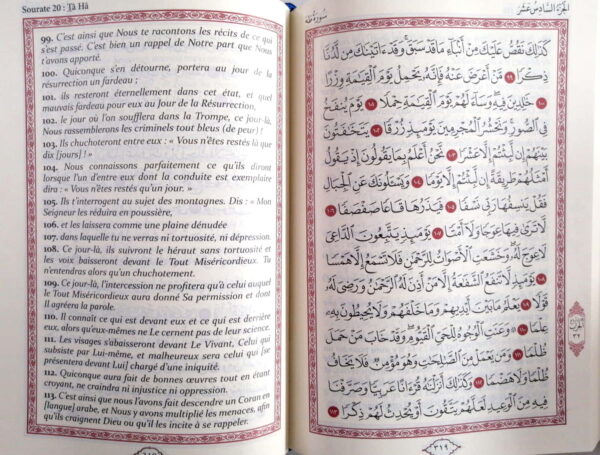 Sourate 20 : Tâ Hâ
99. C'est ainsi que Nous te racontons les récits de ce qui
s'est passé. C'est bien un rappel de Notre part que Nous
t'avons apporté.
100. Quiconque s'en détourne, portera au jour de la
résurrection un fardeau ;
101. ils resteront éternellement dans cet état, et quel
mauvais fardeau pour eux au Jour de la Résurrection,
102. le jour où l'on soufflera dans la Trompe, ce jour-là,
Nous rassemblerons les criminels tout bleus (de peur) !
103. Ils chuchoteront entre eux : « Vous n'êtes restés là que
dix [jours] ! »
104. Nous connaissons parfaitement ce qu'ils diront
lorsque l'un d'entre eux dont la conduite est exemplaire
dira : « Vous n'êtes restés qu'un jour. »
105. Ils t'interrogent au sujet des montagnes. Dis : « Mon
Seigneur les réduira en poussière,
106. et les laissera comme une plaine dénudée
107. dans laquelle tu ne verras ni tortuosité, ni dépression.
108. Ce jour-là, ils suivront le héraut sans tortuosité et
les voix baisseront devant le Tout Miséricordieux. Tu
n'entendras alors qu'un chuchotement.
109. Ce jour-là, l'intercession ne profitera qu'à celui auquel
le Tout Miséricordieux aura donné Sa permission et dont
Il agréera la parole.
110. Il connaît ce qui est devant eux et ce qui est derrière
eux, alors qu'eux-mêmes ne Le cernent pas de leur science.
111. Les visages s'abaisseront devant Le Vivant, Celui qui
subsiste par Lui-même, et malheureux sera celui qui [se
présentera devant Lui] chargé d'une iniquité.
112. Quiconque aura fait de bonnes œuvres tout en étant
croyant, ne craindra ni injustice ni oppression.
113. C'est ainsi que nous l'avons fait descendre un Coran en
[langue] arabe, et Nous y avons multiplié les menaces, afin
qu'ils craignent Dieu ou qu'il les incite à se rappeler.
سُورَةُ طه
الجُزْءُ السَّادِسَ عَشَرَ
كَذَٰلِكَ نَقُصُّ عَلَيْكَ مِنْ أَنۢبَآءِ مَا قَدْ سَبَقَ ۚ وَقَدْ ءَاتَيْنَٰكَ مِن لَّدُنَّا
ذِكْرًا ٩٩ مَّنْ أَعْرَضَ عَنْهُ فَإِنَّهُۥ يَحْمِلُ يَوْمَ ٱلْقِيَٰمَةِ وِزْرًا
١٠٠ خَٰلِدِينَ فِيهِ ۖ وَسَآءَ لَهُمْ يَوْمَ ٱلْقِيَٰمَةِ حِمْلًا ١٠١ يَوْمَ يُنفَخُ
فِى ٱلصُّورِ ۚ وَنَحْشُرُ ٱلْمُجْرِمِينَ يَوْمَئِذٍ زُرْقًا ١٠٢ يَتَخَٰفَتُونَ
بَيْنَهُمْ إِن لَّبِثْتُمْ إِلَّا عَشْرًا ١٠٣ نَّحْنُ أَعْلَمُ بِمَا يَقُولُونَ إِذْ يَقُولُ
أَمْثَلُهُمْ طَرِيقَةً إِن لَّبِثْتُمْ إِلَّا يَوْمًا ١٠٤ وَيَسْـَٔلُونَكَ عَنِ ٱلْجِبَالِ
فَقُلْ يَنسِفُهَا رَبِّى نَسْفًا ١٠٥ فَيَذَرُهَا قَاعًا صَفْصَفًا ١٠٦
لَّا تَرَىٰ فِيهَا عِوَجًا وَلَآ أَمْتًا ١٠٧ يَوْمَئِذٍ يَتَّبِعُونَ ٱلدَّاعِىَ
لَا عِوَجَ لَهُۥ ۖ وَخَشَعَتِ ٱلْأَصْوَاتُ لِلرَّحْمَٰنِ فَلَا تَسْمَعُ إِلَّا هَمْسًا
١٠٨ يَوْمَئِذٍ لَّا تَنفَعُ ٱلشَّفَٰعَةُ إِلَّا مَنْ أَذِنَ لَهُ ٱلرَّحْمَٰنُ وَرَضِىَ لَهُۥ
قَوْلًا ١٠٩ يَعْلَمُ مَا بَيْنَ أَيْدِيهِمْ وَمَا خَلْفَهُمْ وَلَا يُحِيطُونَ بِهِۦ
عِلْمًا ١١٠ وَعَنَتِ ٱلْوُجُوهُ لِلْحَىِّ ٱلْقَيُّومِ ۖ وَقَدْ خَابَ مَنْ حَمَلَ
ظُلْمًا ١١١ وَمَن يَعْمَلْ مِنَ ٱلصَّٰلِحَٰتِ وَهُوَ مُؤْمِنٌ فَلَا يَخَافُ
ظُلْمًا وَلَا هَضْمًا ١١٢ وَكَذَٰلِكَ أَنزَلْنَٰهُ قُرْءَانًا عَرَبِيًّا وَصَرَّفْنَا
فِيهِ مِنَ ٱلْوَعِيدِ لَعَلَّهُمْ يَتَّقُونَ أَوْ يُحْدِثُ لَهُمْ ذِكْرًا ١١٣
٣١٩